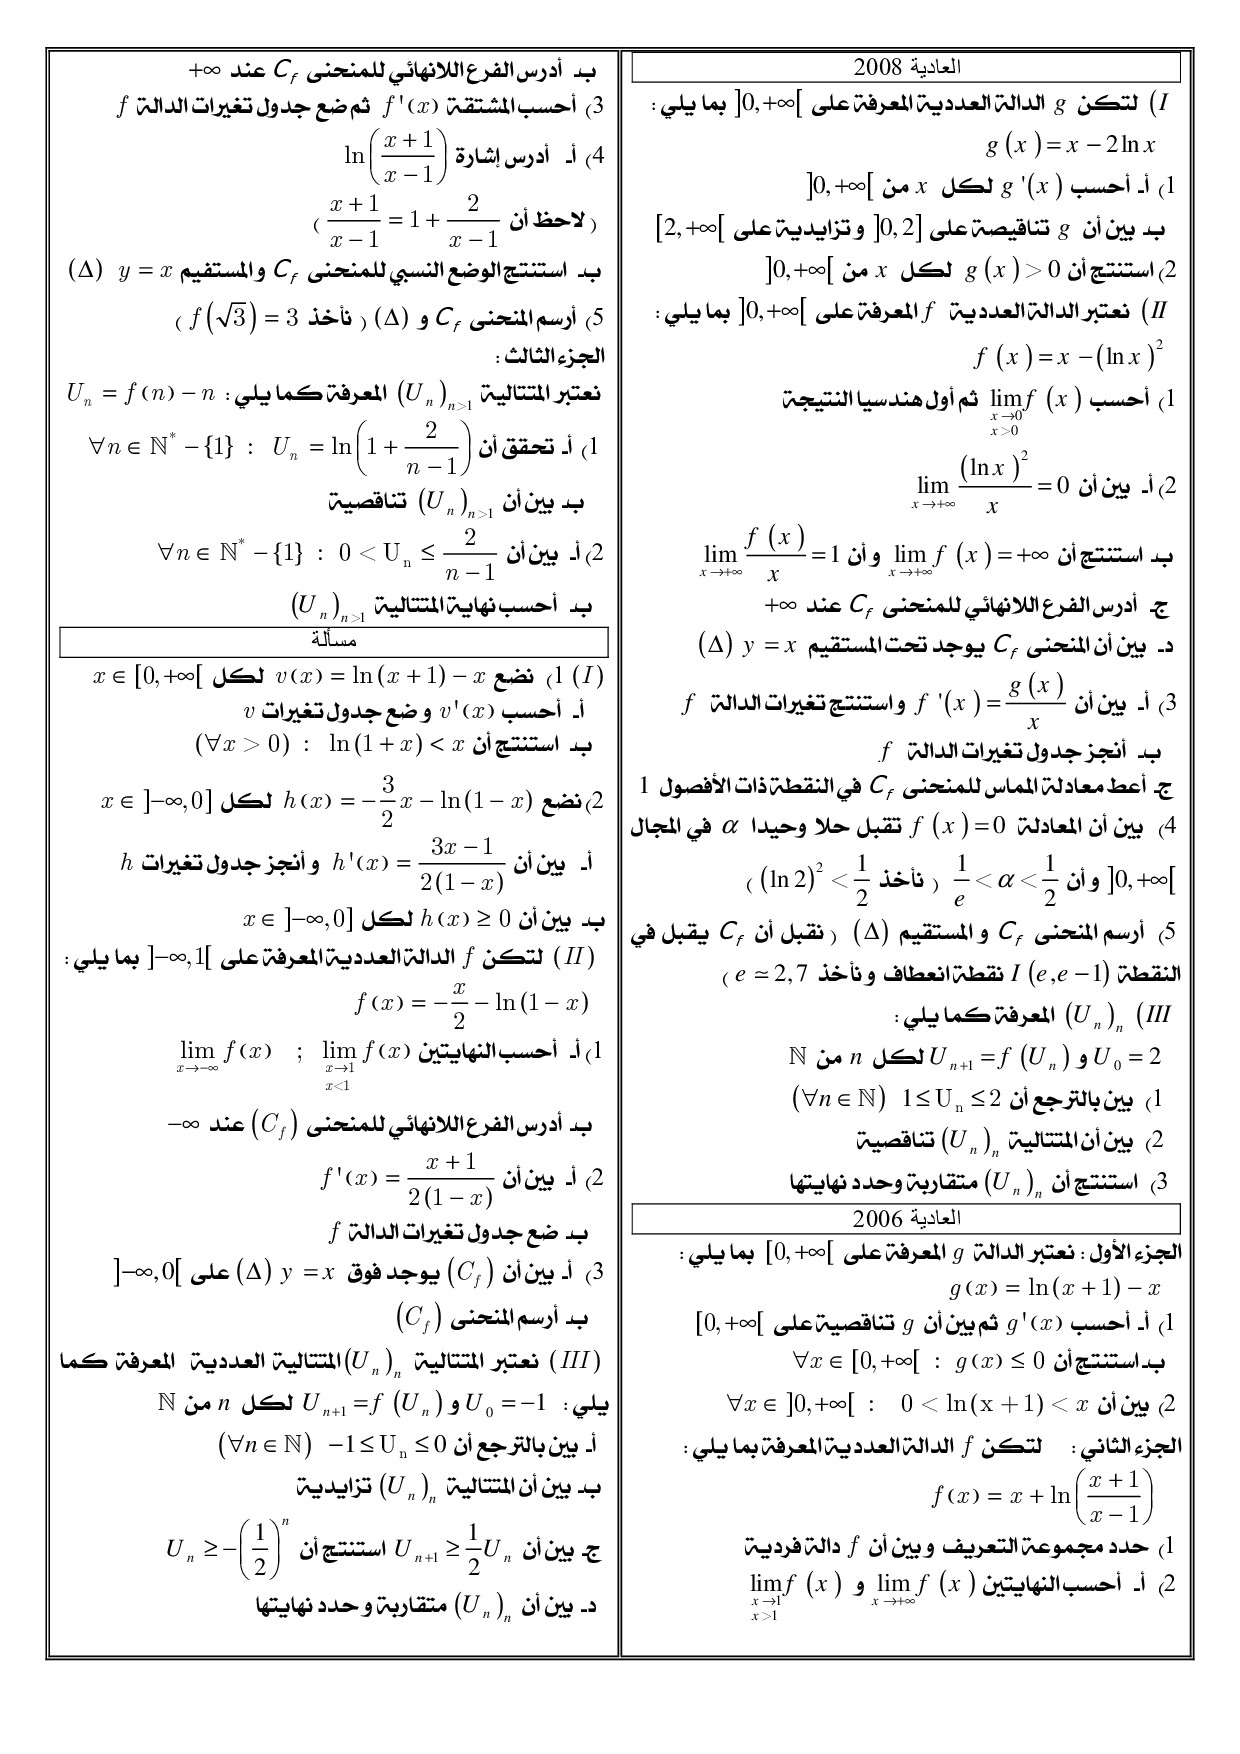 العادية 2008
I) لتكن g الدالة العددية المعرفة على ]0,+∞[ بما يلي :
g(x) = x − 2ln x
1) أـ أحسب g'(x) لكل x من ]0,+∞[
بـ بين أن g تناقيصة على ]0,2] و تزايدية على [2,+∞[
2) استنتج أن g(x) > 0 لكل x من ]0,+∞[
II) نعتبر الدالة العددية f المعرفة على ]0,+∞[ بما يلي :
f(x) = x − (ln x)²
1) أحسب lim_{x→0, x>0} f(x) ثم أول هندسيا النتيجة
2) أـ بين أن lim_{x→+∞} (ln x)²/x = 0
بـ استنتج أن lim_{x→+∞} f(x) = +∞ و أن lim_{x→+∞} f(x)/x = 1
جـ أدرس الفرع اللانهائي للمنحنى C_f عند +∞
دـ بين أن المنحنى C_f يوجد تحت المستقيم (Δ) y = x
3) أـ بين أن f'(x) = g(x)/x و استنتج تغيرات الدالة f
بـ أنجز جدول تغيرات الدالة f
جـ أعط معادلة المماس للمنحنى C_f في النقطة ذات الأفصول 1
4) بين أن المعادلة f(x) = 0 تقبل حلا وحيدا α في المجال
]0,+∞[ و أن 1/e < α < 1/2 ( نأخذ (ln 2)² < 1/2 )
5) أرسم المنحنى C_f و المستقيم (Δ) ( نقبل أن C_f يقبل في
النقطة I(e,e−1) نقطة انعطاف و نأخذ e ≃ 2,7 )
III) (U_n)_n المعرفة كما يلي :
U_0 = 2 و U_{n+1} = f(U_n) لكل n من ℕ
1) بين بالترجع أن 1 ≤ U_n ≤ 2 (∀n∈ℕ)
2) بين أن المتتالية (U_n)_n تناقصية
3) استنتج أن (U_n)_n متقاربة وحدد نهايتها
العادية 2006
الجزء الأول : نعتبر الدالة g المعرفة على [0,+∞[ بما يلي :
g(x) = ln(x+1) − x
1) أـ أحسب g'(x) ثم بين أن g تناقصية على [0,+∞[
بـ استنتج أن ∀x∈[0,+∞[ : g(x) ≤ 0
2) بين أن ∀x∈]0,+∞[ : 0 < ln(x+1) < x
الجزء الثاني : لتكن f الدالة العددية المعرفة بما يلي :
f(x) = x + ln((x+1)/(x−1))
1) حدد مجموعة التعريف و بين أن f دالة فردية
2) أـ أحسب النهايتين lim_{x→+∞} f(x) و lim_{x→1, x>1} f(x)
بـ أدرس الفرع اللانهائي للمنحنى C_f عند +∞
3) أحسب المشتقة f'(x) ثم ضع جدول تغيرات الدالة f
4) أـ أدرس إشارة ln((x+1)/(x−1))
( لاحظ أن (x+1)/(x−1) = 1 + 2/(x−1) )
بـ استنتج الوضع النسبي للمنحنى C_f و المستفيم (Δ) y = x
5) أرسم المنحنى C_f و (Δ) ( نأخذ f(√3) = 3 )
الجزء الثالث :
نعتبر المتتالية (U_n)_{n>1} المعرفة كما يلي : U_n = f(n) − n
1) أـ تحقق أن ∀n∈ℕ*−{1} : U_n = ln(1 + 2/(n−1))
بـ بين أن (U_n)_{n>1} تناقصية
2) أـ بين أن ∀n∈ℕ*−{1} : 0 < U_n ≤ 2/(n−1)
بـ أحسب نهاية المتتالية (U_n)_{n>1}
مسألة
(I) 1) نضع v(x) = ln(x+1) − x لكل x∈[0,+∞[
أـ أحسب v'(x) و ضع جدول تغيرات v
بـ استنتج أن (∀x > 0) : ln(1+x) < x
2) نضع h(x) = −3/2 x − ln(1−x) لكل x∈]−∞,0]
أـ بين أن h'(x) = (3x−1)/(2(1−x)) و أنجز جدول تغيرات h
بـ بين أن h(x) ≥ 0 لكل x∈]−∞,0]
(II) لتكن f الدالة العددية المعرفة على ]−∞,1[ بما يلي :
f(x) = −x/2 − ln(1−x)
1) أـ أحسب النهايتين lim_{x→1, x<1} f(x) ; lim_{x→−∞} f(x)
بـ أدرس الفرع اللانهائي للمنحنى (C_f) عند −∞
2) أـ بين أن f'(x) = (x+1)/(2(1−x))
بـ ضع جدول تغيرات الدالة f
3) أـ بين أن (C_f) يوجد فوق (Δ) y = x على ]−∞,0[
بـ أرسم المنحنى (C_f)
(III) نعتبر المتتالية (U_n)_n المتتالية العددية المعرفة كما
يلي : U_0 = −1 و U_{n+1} = f(U_n) لكل n من ℕ
أـ بين بالترجع أن −1 ≤ U_n ≤ 0 (∀n∈ℕ)
بـ بين أن المتتالية (U_n)_n تزايدية
جـ بين أن U_{n+1} ≥ 1/2 U_n استنتج أن U_n ≥ −(1/2)^n
دـ بين أن (U_n)_n متقاربة و حدد نهايتها